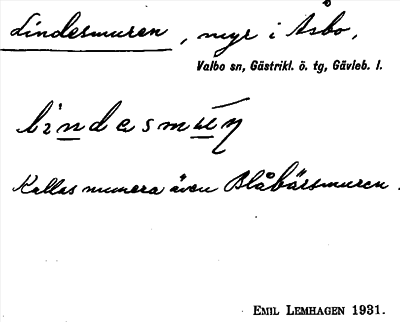 Lindesmuren, myr i Åsbo,
Valbo sn, Gästrikl. ö. tg, Gävleb. l.
Kallas numera även Blåbärsmuren.
EMIL LEMHAGEN 1931.